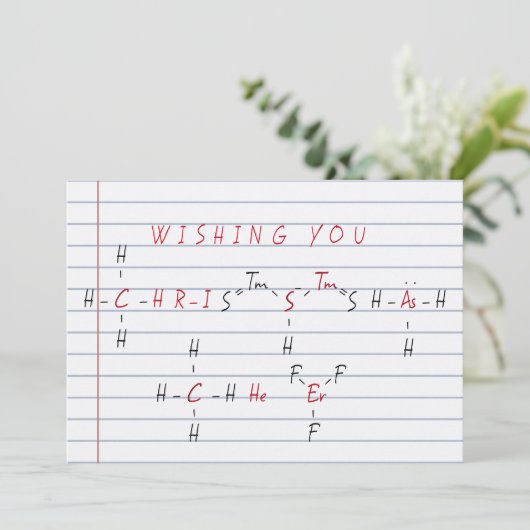 WISHING YOU
H
Tm Tm
H - C - H R - I S = S - = S H - Äs - H
H H H
H
F F
H - C - H He Er
H F